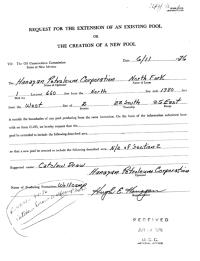 REQUEST FOR THE EXTENSION OF AN EXISTING POOL
OR
THE CREATION OF A NEW POOL
Date 6/11 76
TO: The Oil Conservation Commission
State of New Mexico
The Hanagan Petroleum Corporation North Fork
Name of Operator
Located 660 feet from the North line and 1980 feet
from the West of 2 22 South 25 East
is outside the boundaries of any pool producing from the same formation. On the basis of the information submitted here-
with on form C-105, we hereby request that the
pool be extended to include the following described area
or that a new pool be created to include the following described area. N/2 of Section 2
Suggested name: Catclaw Draw
Hanagan Petroleum Corporation
Name of Operator
Name of Producing Formation Wolfcamp
Hugh E. Hanagan
RECEIVED
O. C. C.